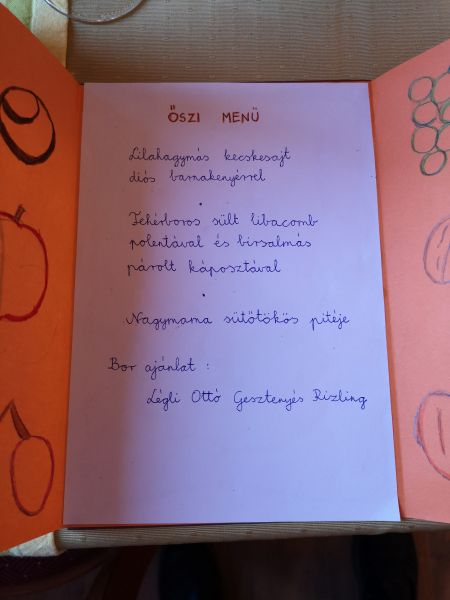 ŐSZI MENÜ
Lilahagymás kecskesajt
diós barnakenyérrel
Fehérboros sült libacomb
polentával és birsalmás
párolt káposztával
Nagymama sütőtökös pitéje
Bor ajánlat :
Légli Ottó Gesztenyés Rizling